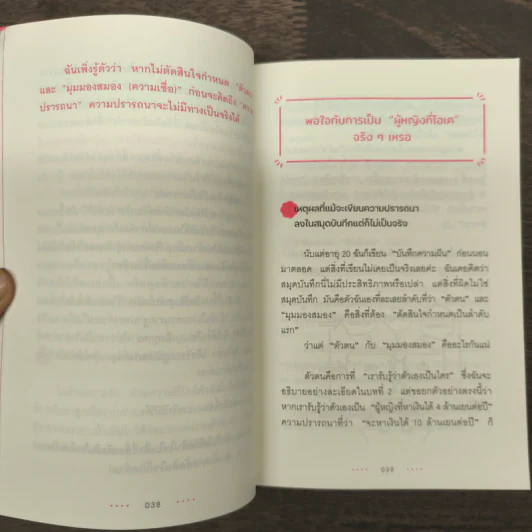 ฉันเพิ่งรู้ตัวว่า หากไม่ตัดสินใจกำหนด "ตัวตน"
และ "มุมมองสมอง (ความเชื่อ)" ก่อนจะคิดถึง "ความ
ปรารถนา" ความปรารถนาจะไม่มีทางเป็นจริงได้
038
พอใจกับการเป็น "ผู้หญิงที่โอเค"
จริง ๆ เหรอ
เหตุผลที่แม้จะเขียนความปรารถนา
ลงในสมุดบันทึกแต่ก็ไม่เป็นจริง
นับแต่อายุ 20 ฉันก็เขียน "บันทึกความฝัน" ก่อนนอน
มาตลอด แต่สิ่งที่เขียนไม่เคยเป็นจริงเลยค่ะ ฉันเคยคิดว่า
สมุดบันทึกนี้ไม่มีประสิทธิภาพหรือเปล่า แต่สิ่งที่ผิดไม่ใช่
สมุดบันทึก มันคือตัวฉันเองที่ละเลยลำดับที่ว่า "ตัวตน" และ
"มุมมองสมอง" คือสิ่งที่ต้อง "ตัดสินใจกำหนดเป็นลำดับ
แรก"
ว่าแต่ "ตัวตน" กับ "มุมมองสมอง" คืออะไรกันแน่
ตัวตนคือการที่ "เรารับรู้ว่าตัวเองเป็นใคร" ซึ่งฉันจะ
อธิบายอย่างละเอียดในบทที่ 2 แต่ขอยกตัวอย่างตรงนี้ว่า
หากเรารับรู้ว่าตัวเองเป็น "ผู้หญิงที่หาเงินได้ 4 ล้านเยนต่อปี"
ความปรารถนาที่ว่า "จะหาเงินได้ 10 ล้านเยนต่อปี" ก็
039